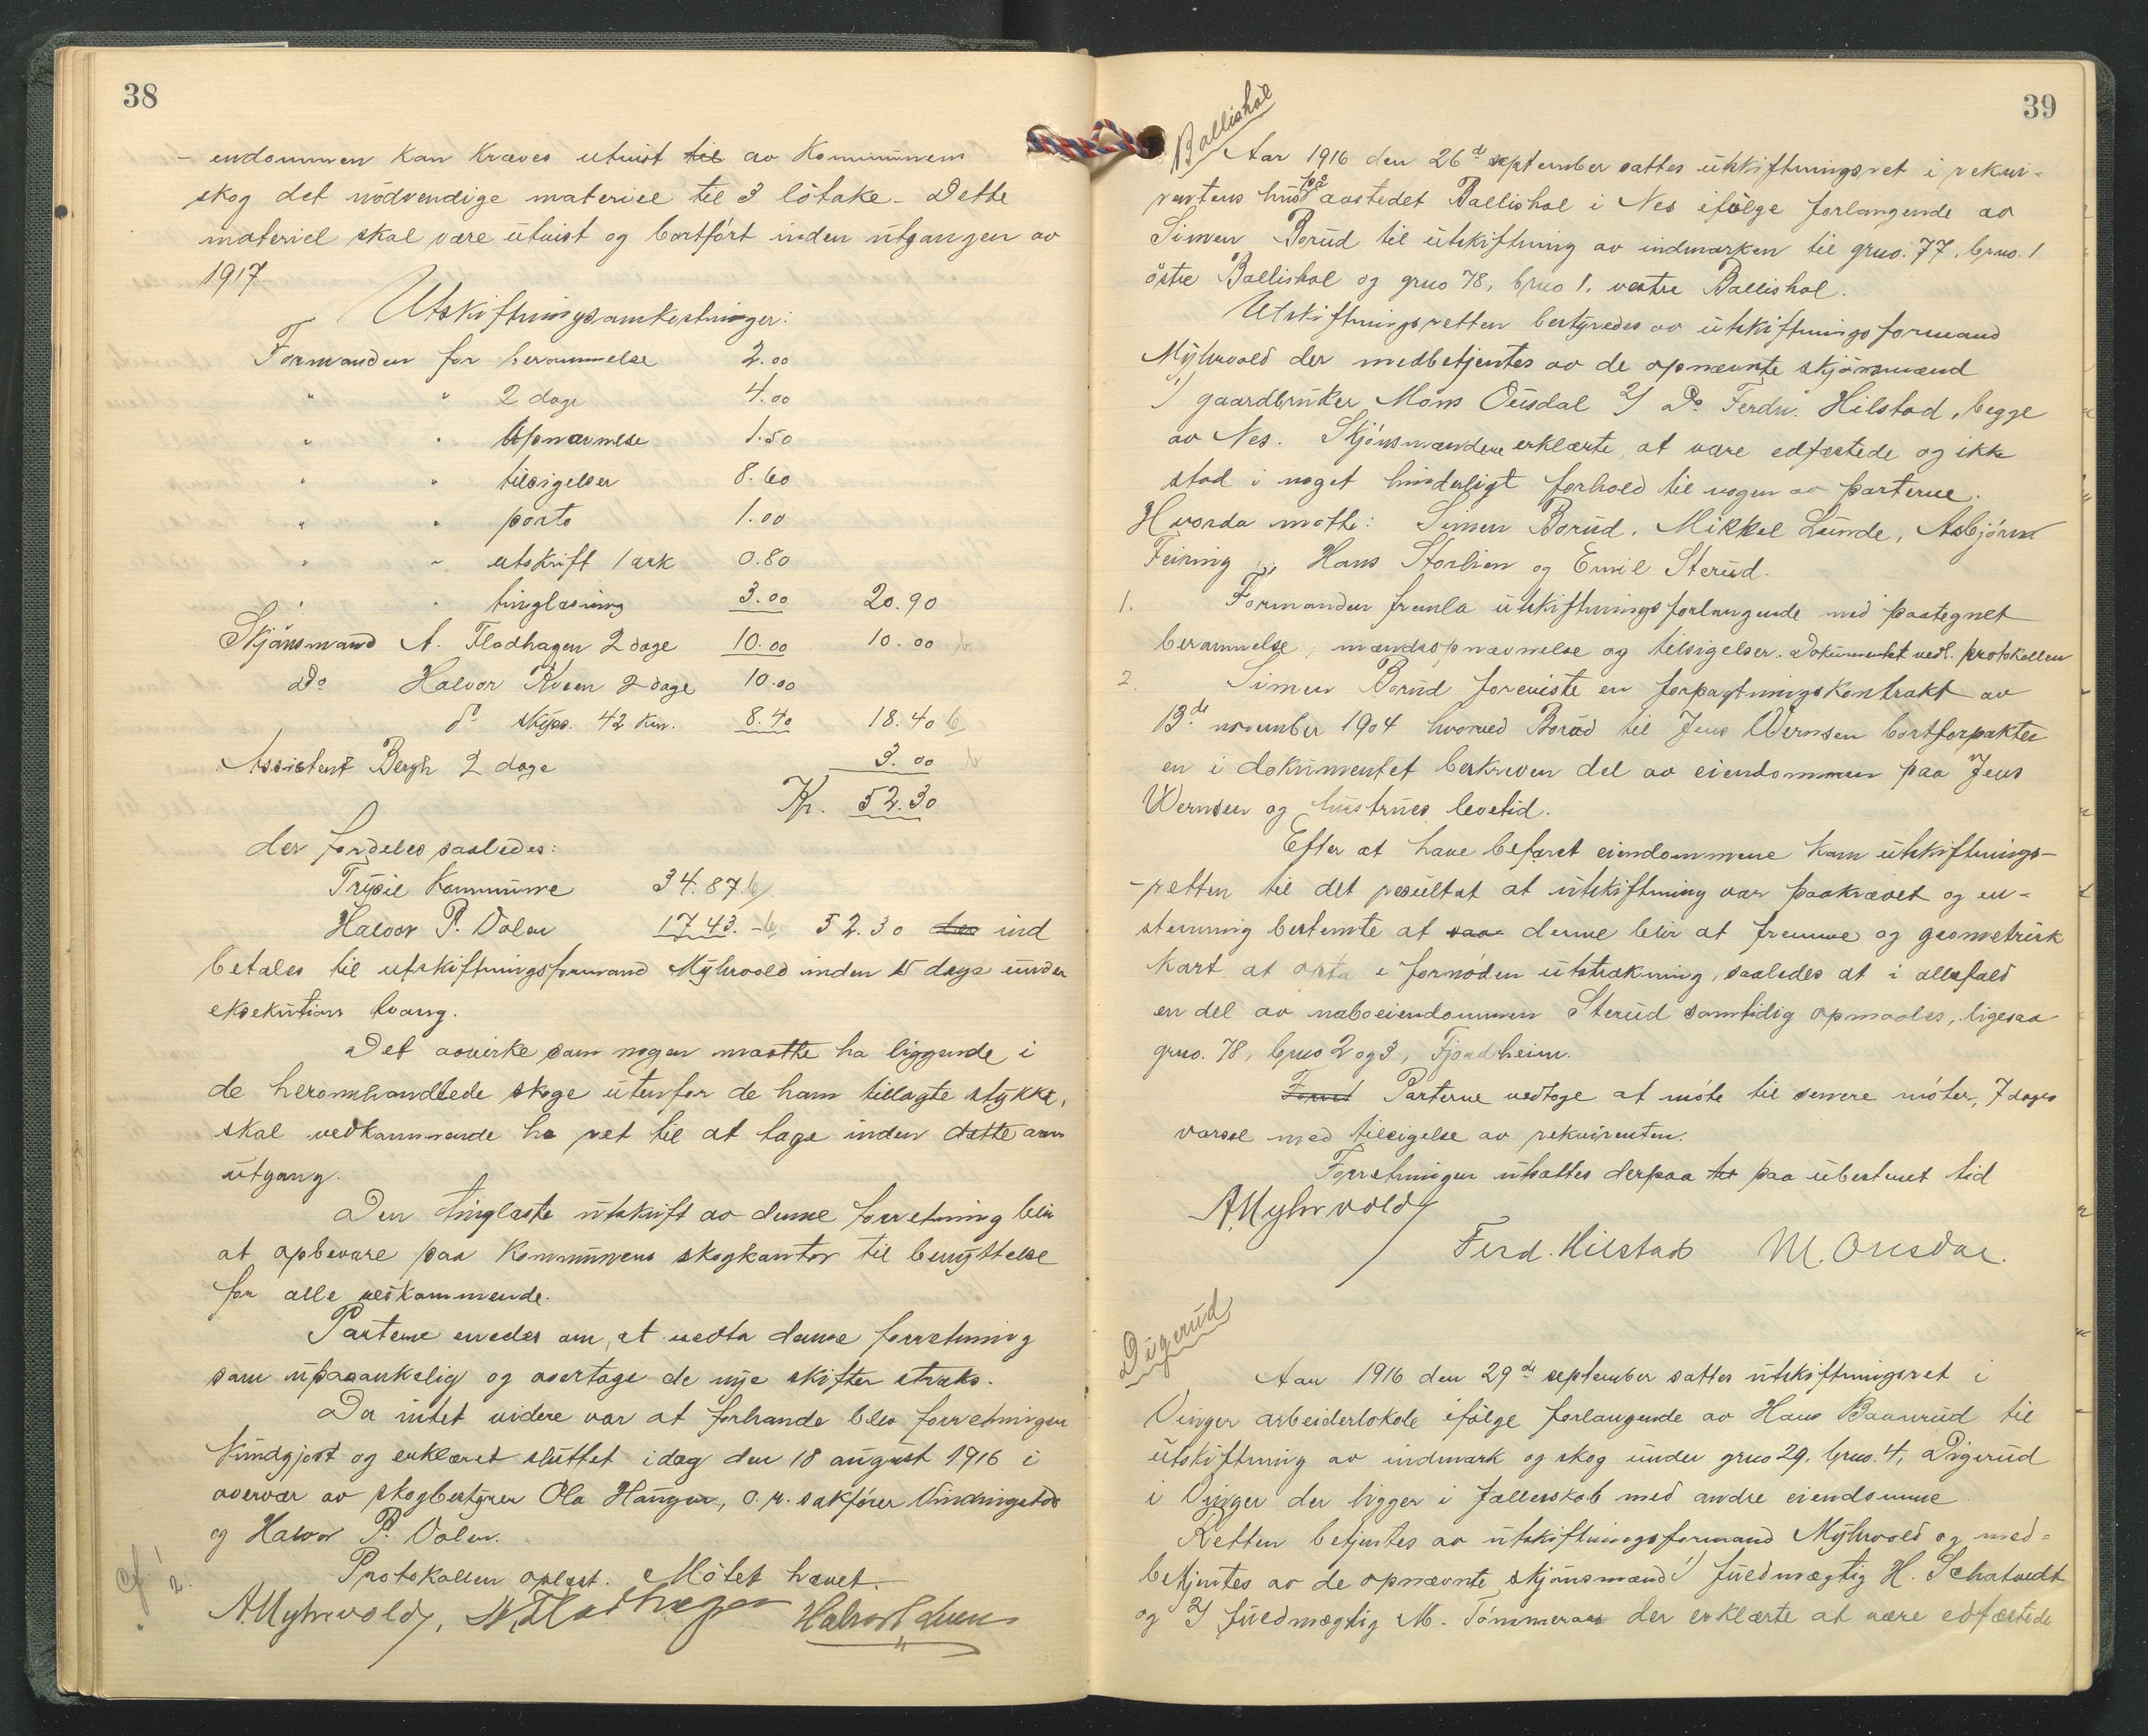 38
- endommen kan kræves utvist til av Kommunens
skog det nödvendige materiel til 3 lötake. Dette
materiel skal være utvist og bortfört inden utgangen av
1917.
Utskiftningsomkostninger:
Formanden for berammelse 2.00
" " 2 dage 4.00
" " opnævnelse 1.50
" " tilsigelser 8.60
" " porto 1.00
" " utskrift 1 ark 0.80
" " tinglæsning 3.00 20.90
Skjönsmand A. Fladhagen 2 dage 10.00 10.00
Do Halvor Kveen 2 dage 10.00
do skyss. 42 km. 8.40 18.40
Assistent Bergh 2 dage 3.00
Kr. 52.30
der fordeles saaledes:
Trysil Kommune 34.87
Halvor P. Volen 17.43. - 52.30 ind
betales til utskiftningsformand Myhrvold inden 15 dage under
eksekutions tvang.
Det avvirke som nogen maatte ha liggende i
de heromhandlede skoge utenfor de ham tillagte stykke,
skal vedkommende ha ret til at tage inden dette aars
utgang.
Den tinglæste utskrift av denne forretning blir
at opbevare paa Kommunens skogkontor til benyttelse
for alle vedkommende.
Parterne enedes om, at vedta denne forretning
som upaaankelig og overtage de nye skifter straks.
Da intet videre var at forhandle blev forretningen
kundgjort og erklæret sluttet idag den 18 august 1916 i
overvær av skogbestyrer Ola Haugen, o.r. sakförer Vindingstad
og Halvor P. Volen.
Protokollen oplæst. Mötet hævet.
A Myhrvold, A. Fladhagen Halvor Kveen
39
Ballishol
Aar 1916 den 26de september sattes utskiftningsret i rekvi-
rentens hus paa aastedet Ballishol i Nes ifölge forlangende av
Simen Borud til utskiftning av indmarken til grno. 77, brno. 1
östre Ballishol og grno 78, brno 1. vestre Ballishol.
Utskiftningsretten bestyredes av utskiftningsformand
Myhrvold der medbetjentes av de opnævnte skjönsmænd
1) gaardbruker Mons Ousdal 2) Do Ferdn. Hilstad, begge
av Nes. Skjönsmændene erklærte at være edfæstede og ikke
stod i noget hinderligt forhold til nogen av parterne.
Hvorda mötte: Simen Borud, Mikkel Lunde, Asbjörn
Feiring, Hans Storlien og Emil Sterud.
1. Formanden fremla utskiftningsforlangende med paategnet
berammelse, mændsopnævnelse og tilsigelser. Dokumentet vedl. protokollen
2. Simen Borud foreviste en forpagtningskontrakt av
13de november 1904 hvorved Borud til Jens Wernsen bortforpakter
en i dokumentet beskreven del av eiendommen paa Jens
Wernsen og hustrues levetid.
Efter at have befaret eiendommene kom utskiftnings-
-retten til det resultat at utskiftning var paakrævet og en-
stemmig bestemte at saa denne blir at fremme og geometrisk
kart at opta i fornöden utstrækning, saaledes at i allefald
en del av naboeiendommen Sterud samtidig opmaales, ligesaa
grno. 78, brno 2 og 3, Fjordheim.
Parterne vedtoge at möte til senere möter, 7 dages
varsel med tilsigelse av rekvirenten.
Forretningen utsattes derpaa paa ubestemt tid
A Myhrvold
Ferd. Hilstad M. Ousdal.
Digerud
Aar 1916 den 29de september sattes utskiftningsret i
Vinger arbeiderlokale ifölge forlangende av Hans Baanrud til
utskiftning av indmark og skog under grno 29, brno. 4, Digerud
i Vinger der ligger i fællesskab med andre eiendomme
Retten betjentes av utskiftningsformand Myhrvold og med-
betjentes av de opnævnte skjönsmænd 1) fuldmægtig H. Schatvedt
og 2) fuldmægtig M. Tömmeraas der erklærte at være edfæstede